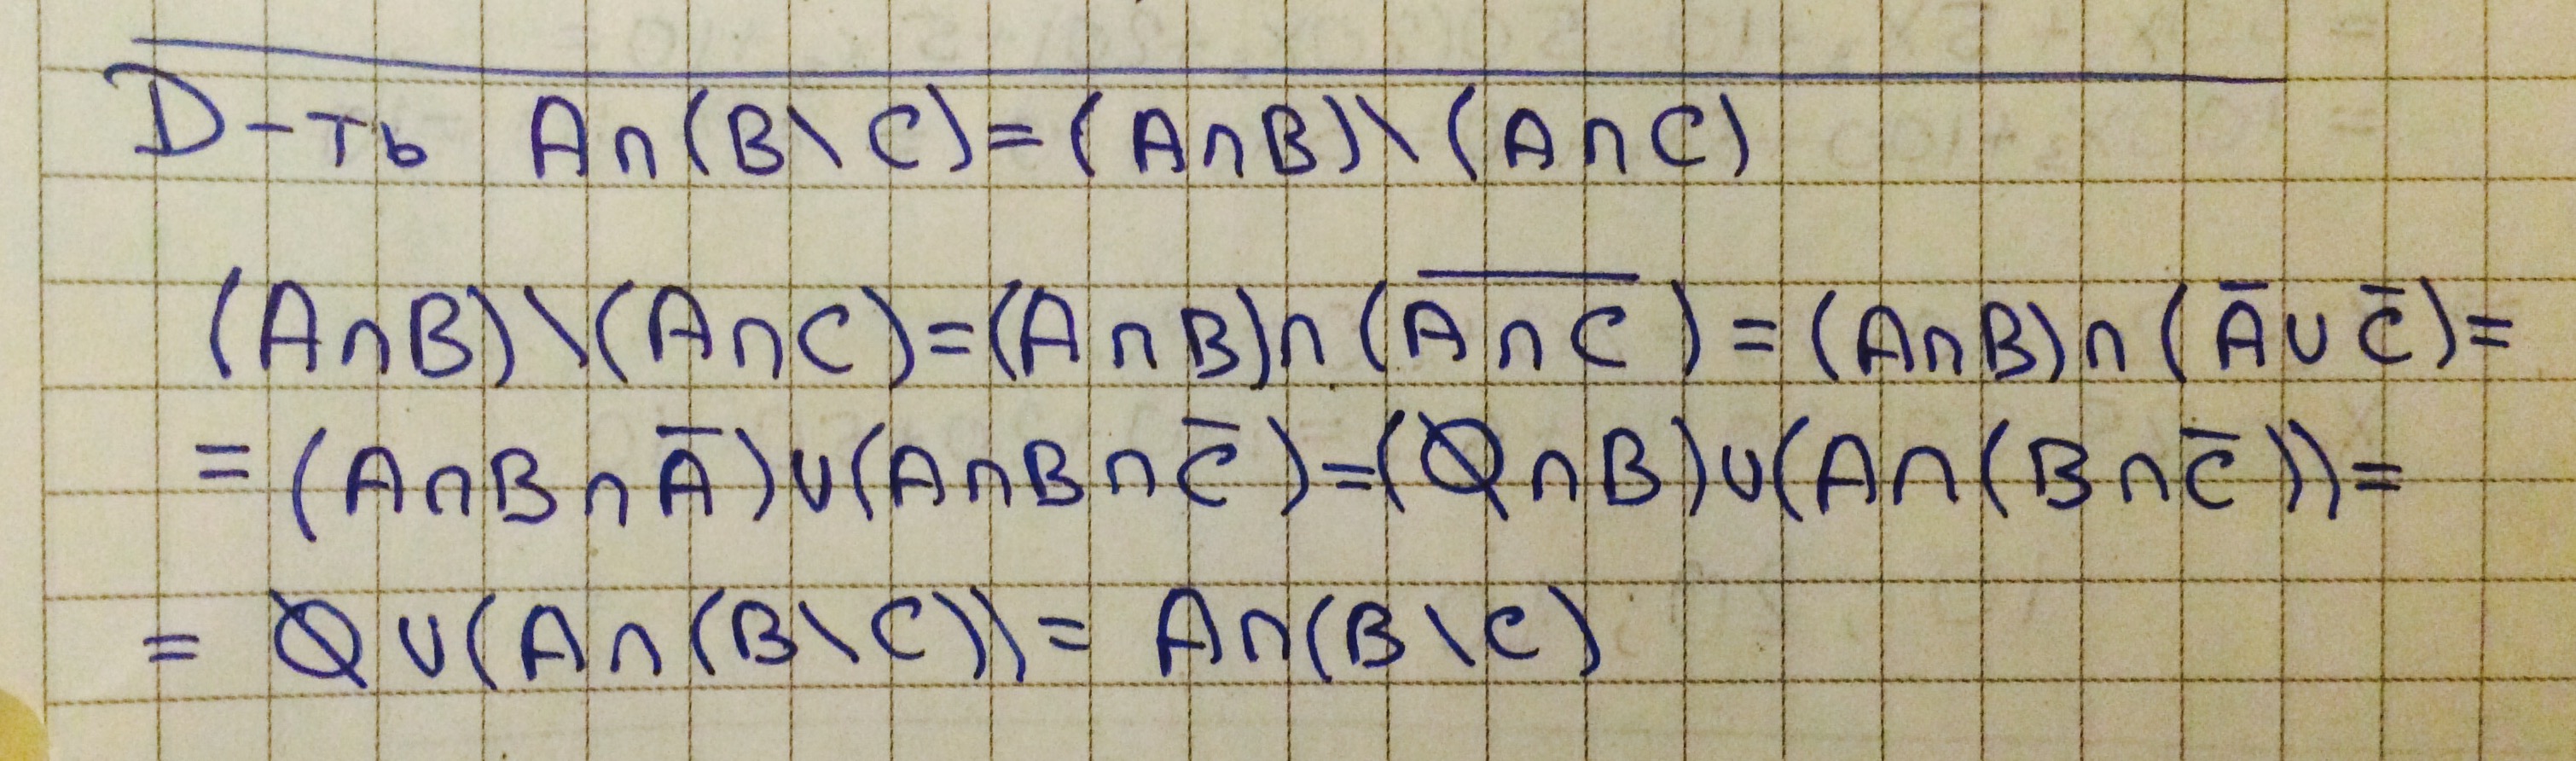 D-ть A∩(B\C)=(A∩B)\(A∩C)
(A∩B)\(A∩C)=(A∩B)∩(\overline{A∩C})=(A∩B)∩(Ā∪C̄)=
=(A∩B∩Ā)∪(A∩B∩C̄)=(∅∩B)∪(A∩(B∩C̄))=
=∅∪(A∩(B\C))=A∩(B\C)